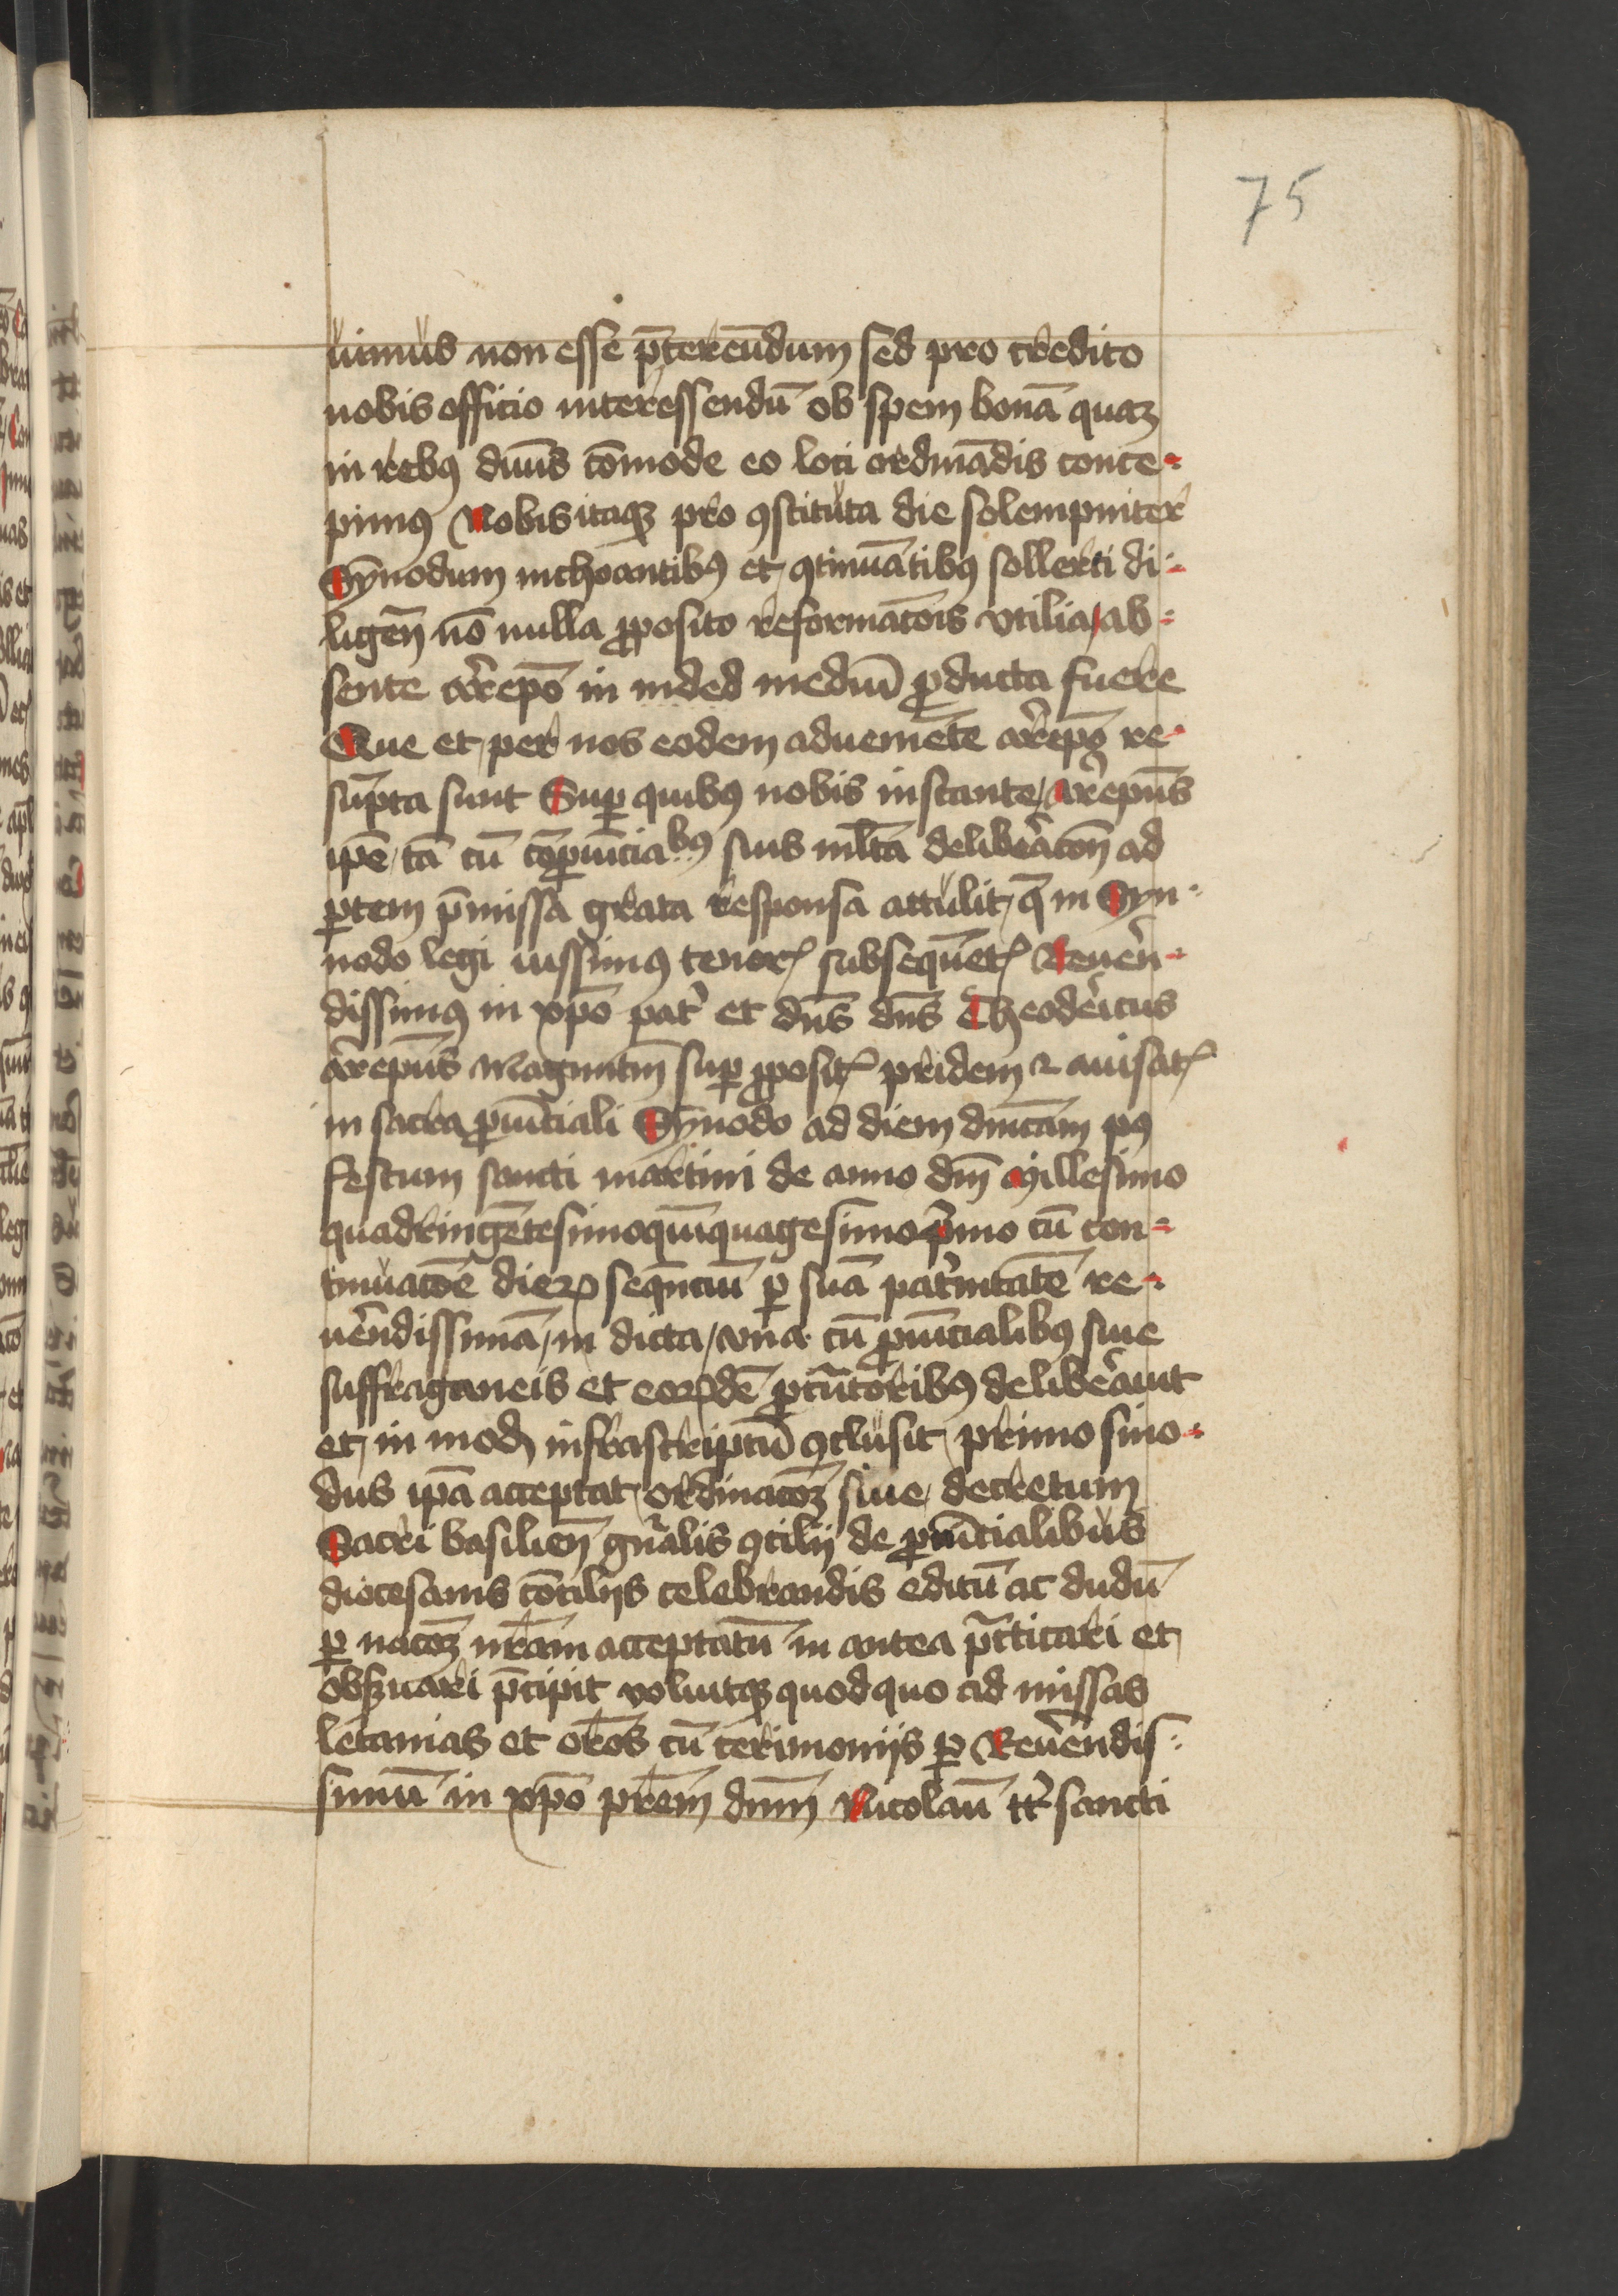 75
uimus non esse p̄tereūdum sed pro credito
nobis officio interessendū ob spem bonā quaʒ
in rebꝰ diuīs cōmode eo loci ordināndis conce⸗
pimꝰ Nobis itaqʒ pro ꝯstituta die solempniter
Synodum inchoantibꝰ et ꝯtinuātibꝰ sollerti di⸗
ligēn nō nulla ꝓposito reformacōis vtilia / ab⸗
sente Archiepō in inded mediū ꝓducta fuere
Que et per nos eodem adueniēte archiepō re⸗
sūpta sunt Suꝑ quibꝰ nobis instante / archiepūs
ip̄e / tā cū cōprouīciabꝰ suis ml̄ta deliberacōn ad
ꝑtem p̄missa grata responsa attulit / q̄ in Syn⸗
nodo legi iussimꝰ tenorꝭ subsequētꝭ Reueren⸗
dissimꝰ in xp̄o pater et dn̄s dn̄s Theodericus
archiepūs Maguntin̄ suꝑ ꝓpositꝭ pridem ⁊ auisatꝭ
in sacra ꝓuīciali Synodo ad diem dn̄icam pꝰ
festum sancti martini de anno dn̄i Millesimo
quadringētesimoquīquagesimop̄mo cū con⸗
tinuacōe dierꝝ sequēciū ꝑ suā pat̄nitātē re⸗
uērndissimā / in dicta / vna cū ꝓuīcialibꝰ siue
suffraganeis et eorꝝdē ꝓcūtoribꝰ deliberauit
et / in modū infrascriptū ꝯclusit / primo sino⸗
dus ip̄a acceptat / ordinacōʒ siue decretum
Sacri basilien̄ gn̄alis ꝯcilij de ꝓuīcialibus
diocesanis cōcilijs celebrandis editū ac dudū
ꝑ nacōʒ nr̄am acceptatū in antea p̄cticari et
obẜuari p̄cipit voluitqʒ quod quo ad missas
letanias et orōes cū cerimonijs ꝑ Reuērendis⸗
simū in xp̄o pr̄em dnm̄ Nicolaū tt̄ sancti